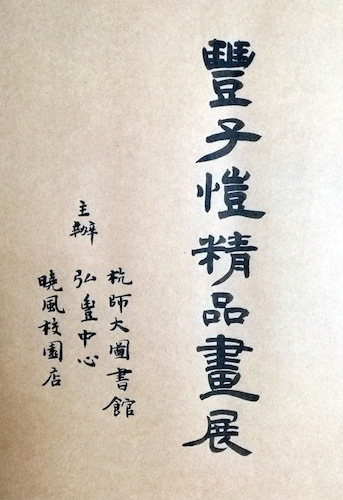 豐子愷精品畫展
主辦
杭師大圖書館
弘豐中心
曉風校園店